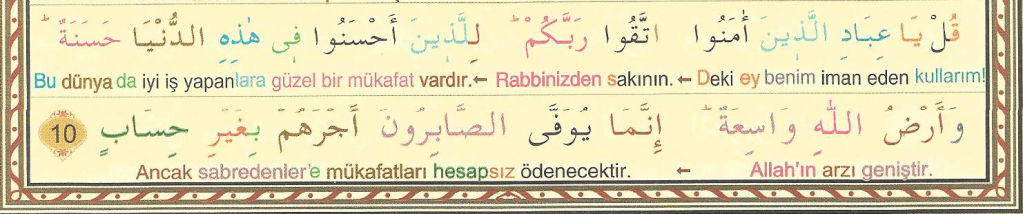 قُلْ يَا عِبَادِ الَّذ۪ينَ اٰمَنُوا اتَّقُوا رَبَّكُمْۜ لِلَّذ۪ينَ اَحْسَنُوا ف۪ي هٰذِهِ الدُّنْيَا حَسَنَةٌۜ
Bu dünya da iyi iş yapanlara güzel bir mükafat vardır.← Rabbinizden sakının. ← Deki ey benim iman eden kullarım!
وَاَرْضُ اللّٰهِ وَاسِعَةٌۜ اِنَّمَا يُوَفَّى الصَّابِرُونَ اَجْرَهُمْ بِغَيْرِ حِسَابٍ 10
Ancak sabredenler'e mükafatları hesapsız ödenecektir. ← Allah'ın arzı geniştir.